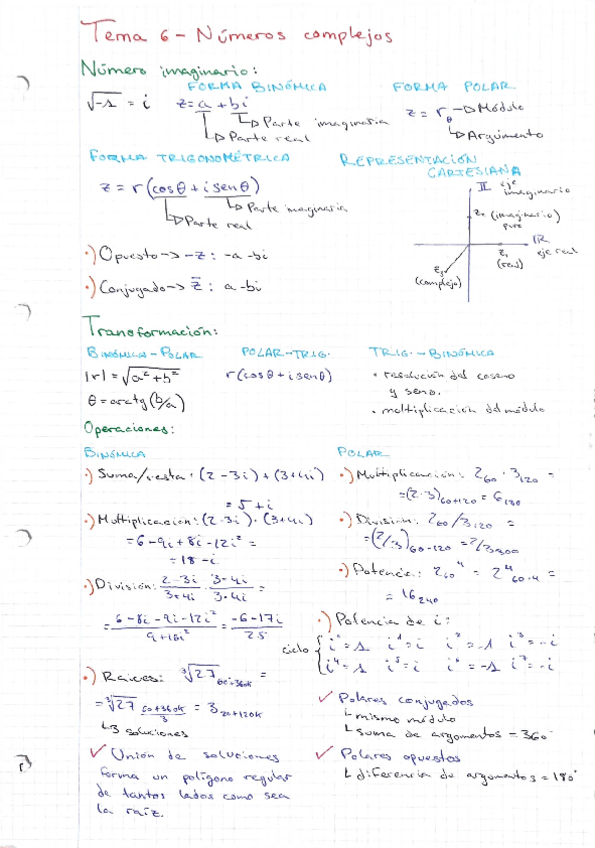 Tema 6 - Números complejos
Número imaginario:
FORMA BINÓMICA
FORMA POLAR
√-1 = i
z = a + bi
Parte imaginaria
Parte real
z = r_θ → Módulo
Argumento
FORMA TRIGONOMÉTRICA
REPRESENTACIÓN CARTESIANA
z = r(cosθ + i senθ)
Parte imaginaria
Parte real
II eje imaginario
z₂ (imaginario) puro
IR
eje real
z₁ (real)
z₃ (complejo)
·) Opuesto → -z : -a - bi
·) Conjugado → z̄ : a - bi
Transformación:
BINÓMICA - POLAR
POLAR - TRIG.
TRIG. - BINÓMICA
|r| = √a² + b²
r(cosθ + i senθ)
• resolución del coseno
y seno.
θ = arctg(b/a)
• multiplicación del módulo
Operaciones:
BINÓMICA
·) Suma/resta: (2 - 3i) + (3 + 4i)
= 5 + i
·) Multiplicación: (2 - 3i) · (3 + 4i)
= 6 - 9i + 8i - 12i² =
= 18 - i
·) División: 2 - 3i / 3 + 4i · 3 - 4i / 3 - 4i =
= 6 - 8i - 9i - 12i² / 9 + 16i² = -6 - 17i / 25
·) Raíces: ³√27 =
= ³√27 60+360k/3 = 3 20+120k
3 soluciones
✓ Unión de soluciones
forma un polígono regular
de tantos lados como sea
la raíz.
POLAR
·) Multiplicación: 2₆₀ · 3₁₂₀ =
= (2·3)₆₀₊₁₂₀ = 6₁₈₀
·) División: 2₆₀/3₁₂₀ =
= (2/3)₆₀₋₁₂₀ = 2/3₃₀₀
·) Potencia: 2₆₀⁴ = 2⁴₆₀·₄ =
= 16₂₄₀
·) Potencia de i:
ciclo
i⁰ = 1 i¹ = i i² = -1 i³ = -i
i⁴ = 1 i⁵ = i i⁶ = -1 i⁷ = -i
✓ Polares conjugados
mismo módulo
suma de argumentos = 360°
✓ Polares opuestos
diferencia de argumentos = 180°